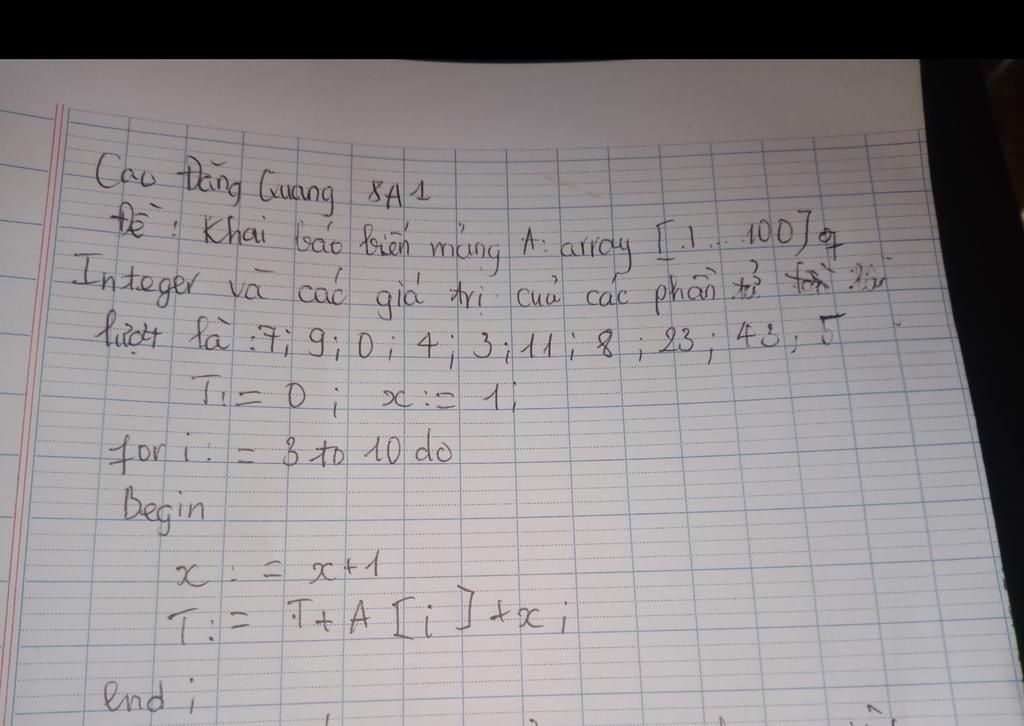 Cao Đăng Quang 8A1
Đề: Khai báo biến mảng A: array [1...100] of
Integer và các giá trị của các phần tử lần
lượt là: 7; 9; 0; 4; 3; 11; 8; 23; 43; 5
T:= 0; x:= 1;
for i:= 3 to 10 do
Begin
x:= x+1
T:= T+ A [i] +x;
end;